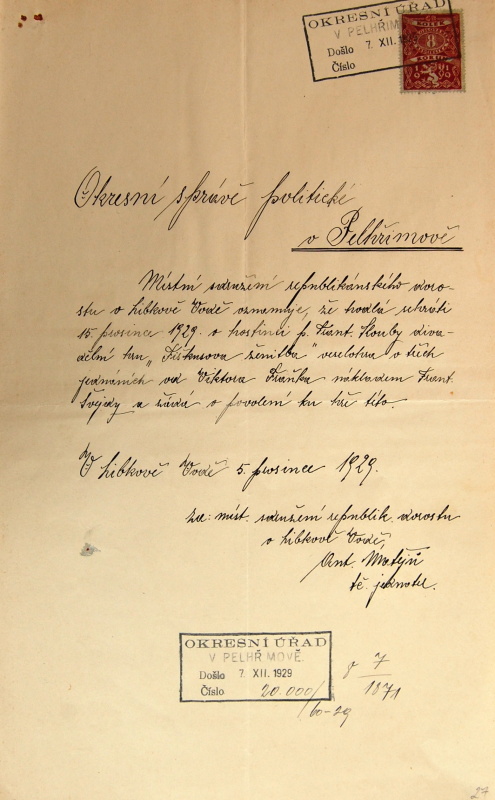 OKRESNÍ ÚŘAD
V PELHŘIMOVĚ
Došlo 7. XII. 1929
Číslo
KOLEK
Okresní správě politické
v Pelhřimově
Místní sdružení republikánského doro-
stu v Libkově Vodě oznamuje, že hodlá sehráti
15. prosince 1929. v hostinci p. Frant. Kouby diva-
delní hru „ ženitba" veselohra o třech
jednáních od Viktora nákladem Frant.
Švejdy a žádá o povolení ku hře této.
V Libkově Vodě 5. prosince 1929.
za: míst. sdružení republik. dorostu
v Libkově Vodě,
Ant. Matějů
tč. jednatel.
OKRESNÍ ÚŘAD
V PELHŘIMOVĚ.
Došlo 7. XII. 1929
Číslo 20.000/
60-29
7
1871
27